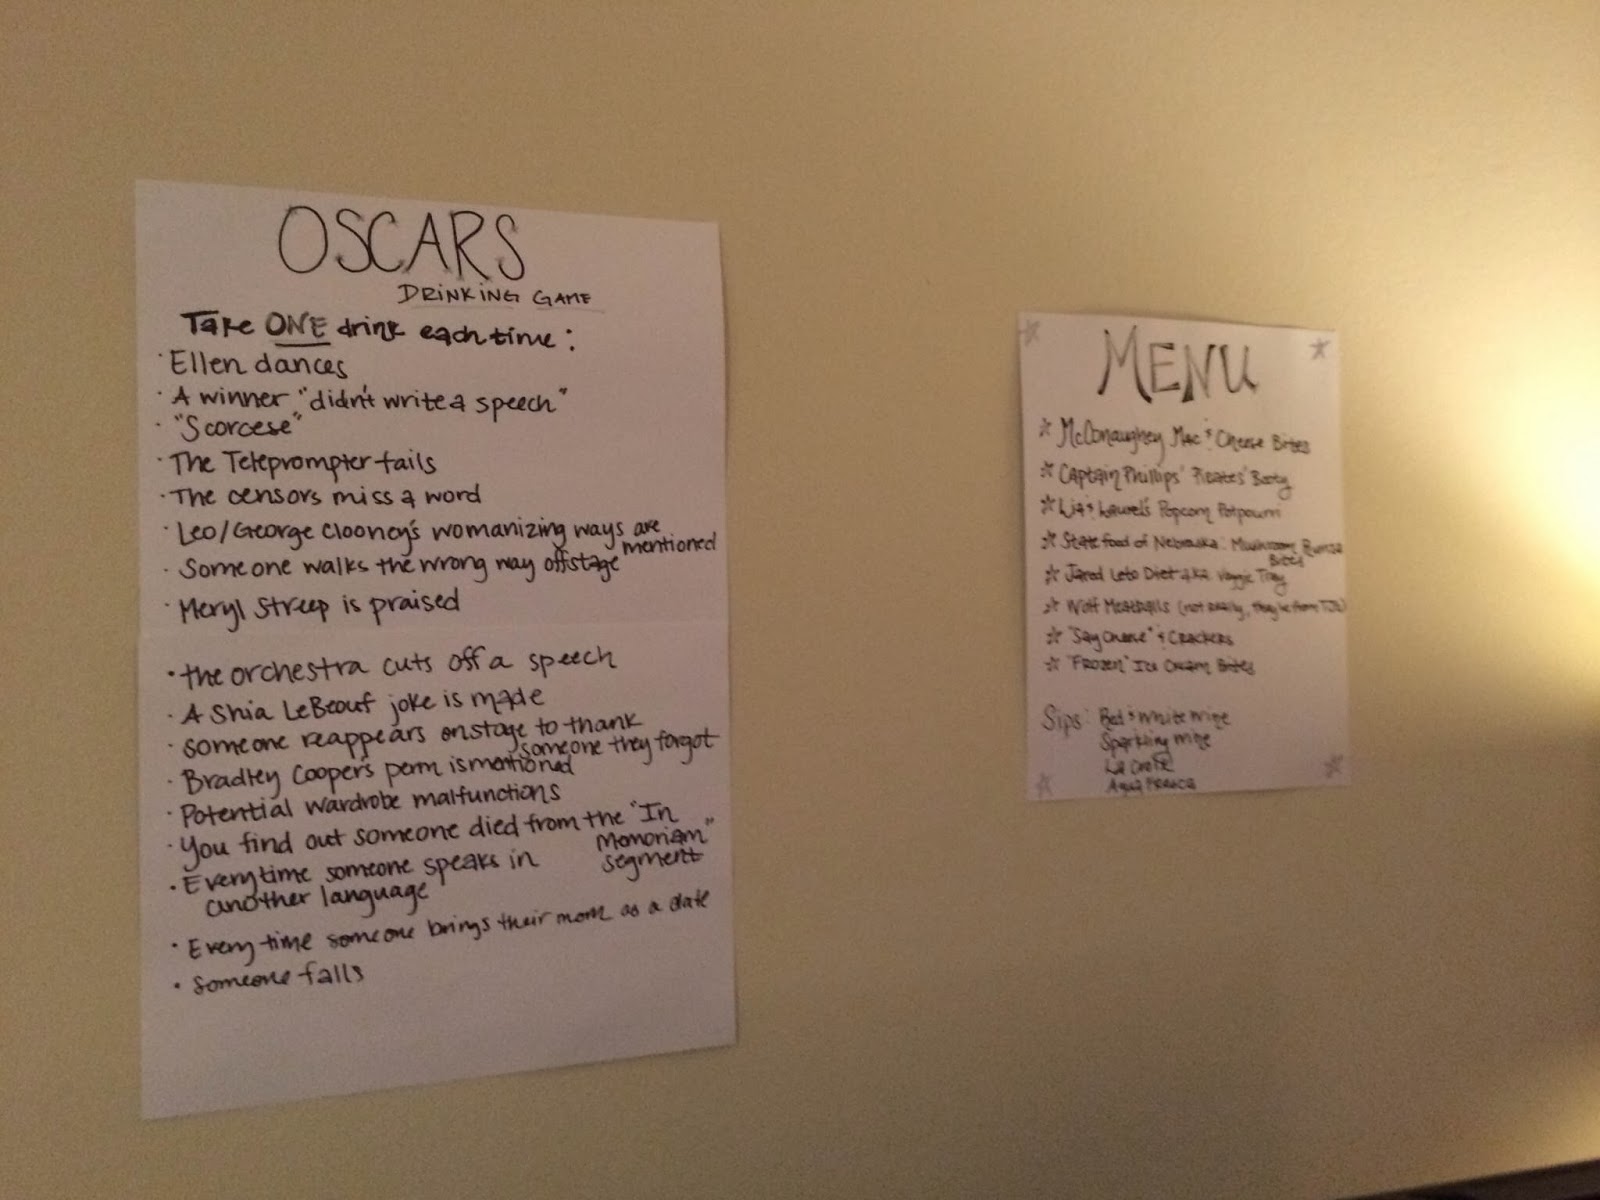 OSCARS
DRINKING GAME
Take ONE drink each time:
· Ellen dances
· A winner "didn't write a speech"
· "Scorcese"
· The Teleprompter fails
· The censors miss a word
· Leo/George Clooney's womanizing ways are
mentioned
· Someone walks the wrong way offstage
· Meryl Streep is praised
· the orchestra cuts off a speech
· A Shia LeBeouf joke is made
· someone reappears onstage to thank
someone they forgot
· Bradley Cooper's perm is mentioned
· Potential wardrobe malfunctions
· You find out someone died from the "In
Memoriam"
segment
· Everytime someone speaks in
another language
· Every time someone brings their mom as a date
· Someone falls
MENU
☆ McConaughey Mac & Cheese Bites
☆ Captain Phillips' Pirates' Booty
☆ Lia & Laurel's Popcorn Potpourri
☆ State food of Nebraska: Mushroom Runza
Bites
☆ Jared Leto Diet a.k.a. Veggie Tray
☆ Wolf Meatballs (not really, they're from TJs)
☆ "Say Cheese" & Crackers
☆ "Frozen" Ice Cream Bites
Sips: Red & White Wine
Sparkling Wine
La Croix
Agua Fresca